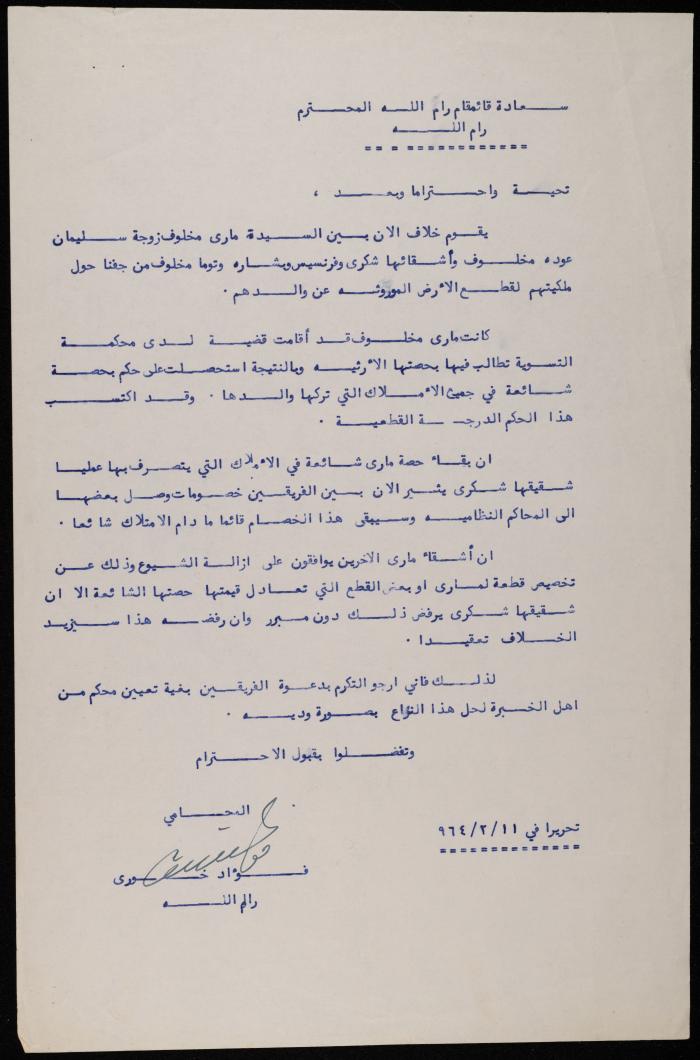 سعادة قائمقام رام الله المحترم
رام الله
تحية واحتراما وبعد ،
يقوم خلاف الان بين السيدة، مارى مخلوف زوجة سليمان
عوده مخلوف وأشقائها شكرى وفرنسيس وبشاره وتوما مخلوف من جفنا حول
ملكيتهم لقطع الأرض الموروثه عن والدهم .
كانت مارى مخلوف قد أقامت قضية لدى محكمة
التسوية تطالب فيها بحصتها الأرثيه وبالنتيجة استحصلت على حكم بحصة
شائعة في جميع الأملاك التي تركها والدها . وقد اكتسب
هذا الحكم الدرجة القطعية .
ان بقاء حصة مارى شائعة في الأملاك التي يتصرف بها عمليا
شقيقها شكرى يثير الان بين الفريقين خصومات وصل بعضها
الى المحاكم النظاميه وسيبقى هذا الخصام قائما ما دام الامتلاك شائعا .
ان أشقاء مارى الاخرين يوافقون على ازالة الشيوع وذلك عن
تخصيص قطعة لمارى او بعض القطع التي تعادل قيمتها حصتها الشائعة الا ان
شقيقها شكرى يرفض ذلك دون مبرر وان رفضه هذا سيزيد
الخلاف تعقيدا .
لذلك فاني ارجو التكرم بدعوة الفريقين بغية تعيين محكم من
اهل الخبرة لحل هذا النزاع بصورة وديه .
وتفضلوا بقبول الاحترام
المحامي
تحريرا في ٩٦٤/٢/١١
فؤاد خورى
رام الله